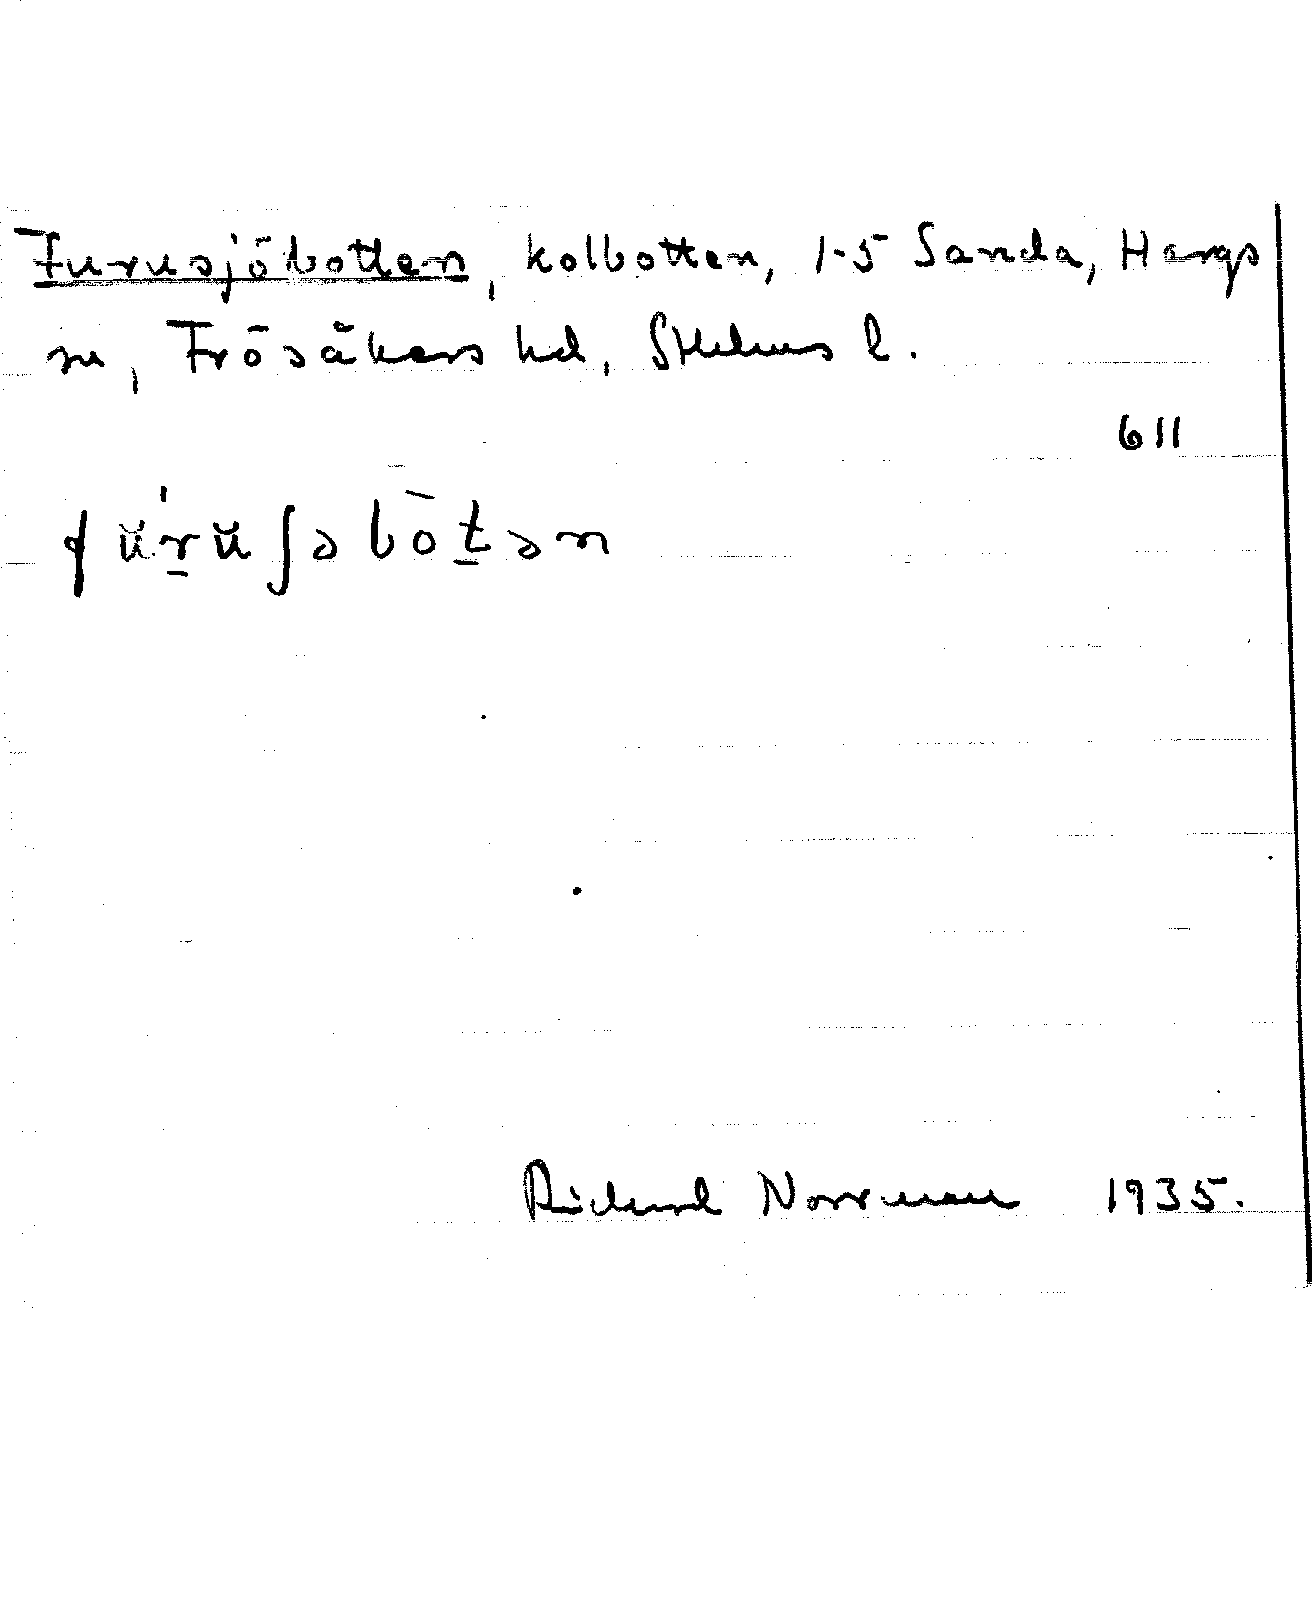 Furusjöbotten, kolbotten, 1-5 Sanda, Hargs
sn, Frösåkers hd, Sthlms l.
611
fŭ'r̲ŭʃəbòt̲ən
Richard Norrman 1935.